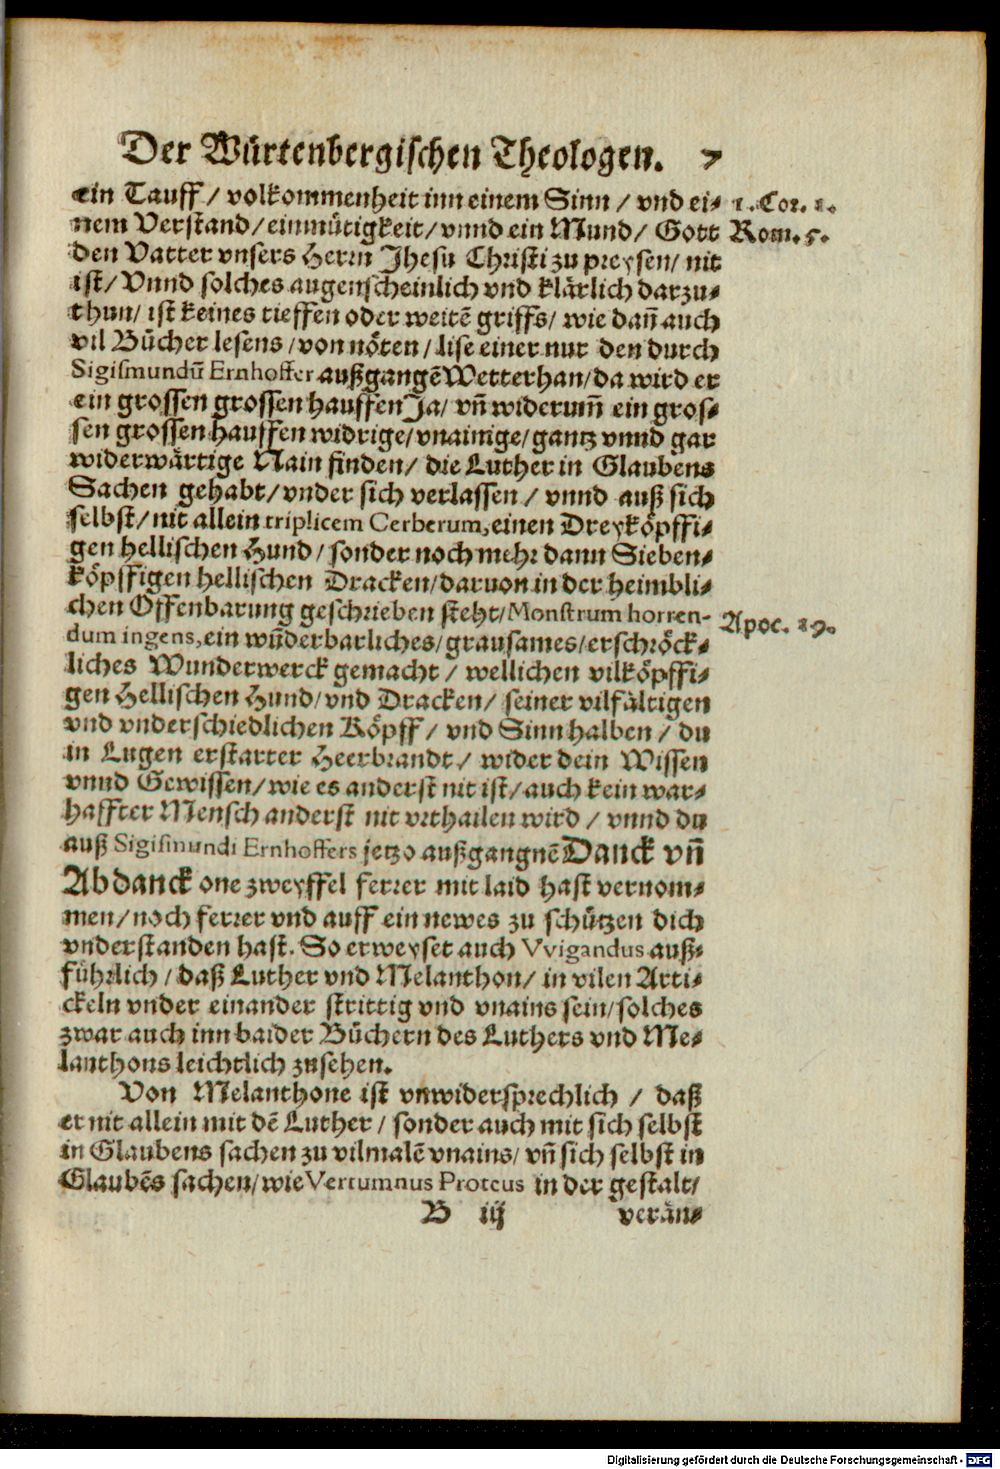 Der Würtenbergischen Theologen. 7
ein Tauff / volkommenheit inn einem Sinn / vnd ei⸗ 1. Cor. 1.
nem Verstand / einmütigkeit / vnnd ein Mund / Gott Rom. 5.
den Vatter vnsers Herrn Jhesu Christi zu preysen / nit
ist / Vnnd solches augenscheinlich vnd klärlich darzu⸗
thun / ist keines tieffen oder weitē griffs / wie dañ auch
vil Bücher lesens / von nöten / lise einer nur den durch
Sigismundū Ernhoffer außgangē Wetterhan / da wird er
ein grossen grossen hauffen Ja / vñ widerum̃ ein gros⸗
sen grossen hauffen widrige / vnainige / gantz vnnd gar
widerwärtige Nain finden / die Luther in Glaubens
Sachen gehabt / vnder sich verlassen / vnnd auß sich
selbst / nit allein triplicem Cerberum, einen Dreyköpffi⸗
gen hellischen Hund / sonder noch mehr dann Sieben⸗
köpffigen hellischen Dracken / daruon in der heimbli⸗
chen Offenbarung geschrieben steht / Monstrum horren- Apoc. 19.
dum ingens, ein wūderbarliches / grausames / erschröck⸗
liches Wunderwerck gemacht / wellichen vilköpffi⸗
gen Hellischen Hund / vnd Dracken / seiner vilfältigen
vnd vnderschiedlichen Köpff / vnd Sinn halben / du
in Lugen erstarter Heerbrandt / wider dein Wissen
vnnd Gewissen / wie es anderst nit ist / auch kein war⸗
haffter Mensch anderst nit vrthailen wird / vnnd du
auß Sigismundi Ernhoffers jetzo außgangnē Danck vñ
Abdanck one zweyffel ferrer mit laid hast vernom⸗
men / noch ferrer vnd auff ein newes zu schützen dich
vnderstanden hast. So erweyset auch VVigandus auß⸗
führlich / daß Luther vnd Melanthon / in vilen Arti⸗
ckeln vnder einander strittig vnd vnains sein / solches
zwar auch inn baider Büchern des Luthers vnd Me⸗
lanthons leichtlich zusehen.
Von Melanthone ist vnwidersprechlich / daß
er nit allein mit dē Luther / sonder auch mit sich selbst
in Glaubens sachen zu vilmalē vnains / vñ sich selbst in
Glaubēs sachen / wie Vertumnus Proteus in der gestalt /
B iij verän⸗
Digitalisierung gefördert durch die Deutsche Forschungsgemeinschaft - DFG